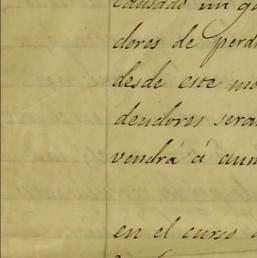 causado un
dores de perd
desde este mo
deudores sera
vendrá á aum
en el curso